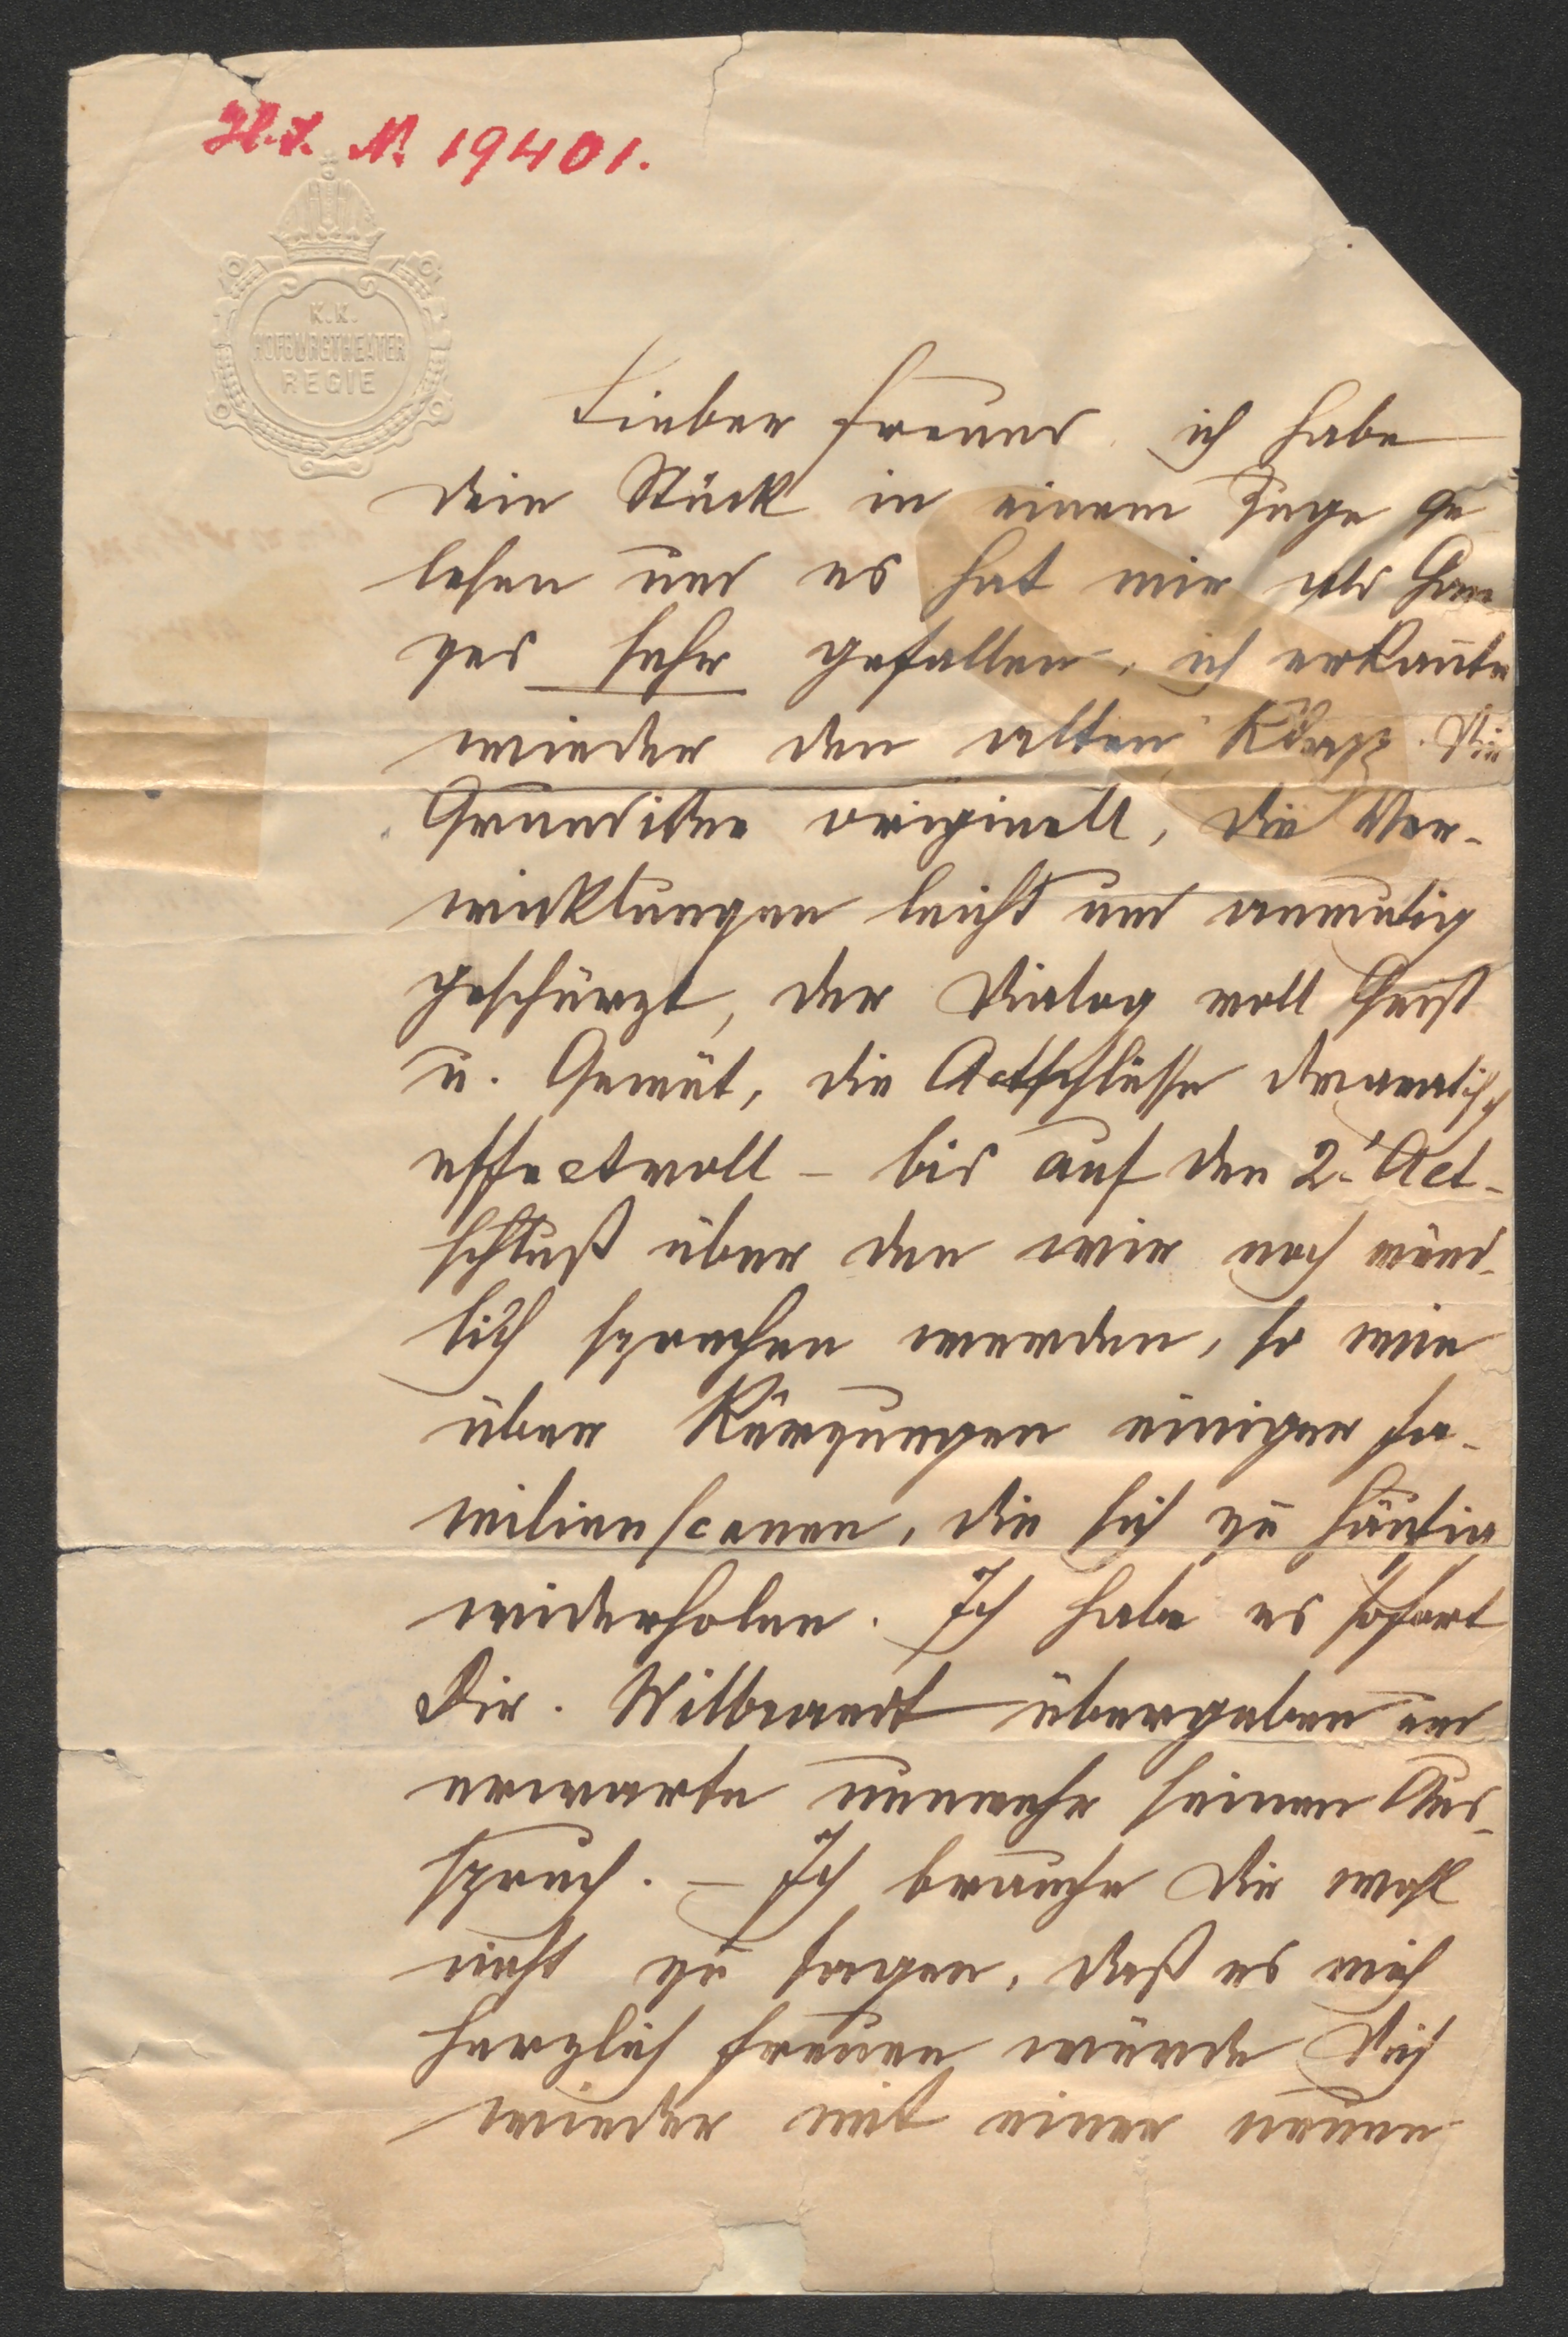 H.I. N. 19401.
K.K.
HOFBURGTHEATER
REGIE
Lieber Freund, ich habe
dein Stück in einem Zuge ge
lesen und es hat mir als Gan
zes sehr gefallen, ich erkannte
wieder den alten Die
Grundidee originell, die Ver-
wicklungen leicht und anmutig
geschürzt, der Dialog voll Geist
u. Gemüt, die Actschlüsse dramatisch
effectvoll – bis auf den 2. Act-
schluß über den wir noch münd-
lich sprechen werden, so wie
über Kürzungen einiger Fa-
milienscenen, die sich zu häufig
widerholen. Ich habe es sofort
Dir. Wilbrandt übergeben und
erwarte nunmehr seinen Aus-
spruch. – Ich brauche Dir wohl
nicht zu sagen, daß es mich
herzlich freuen würde Dich
wieder mit einer neuen